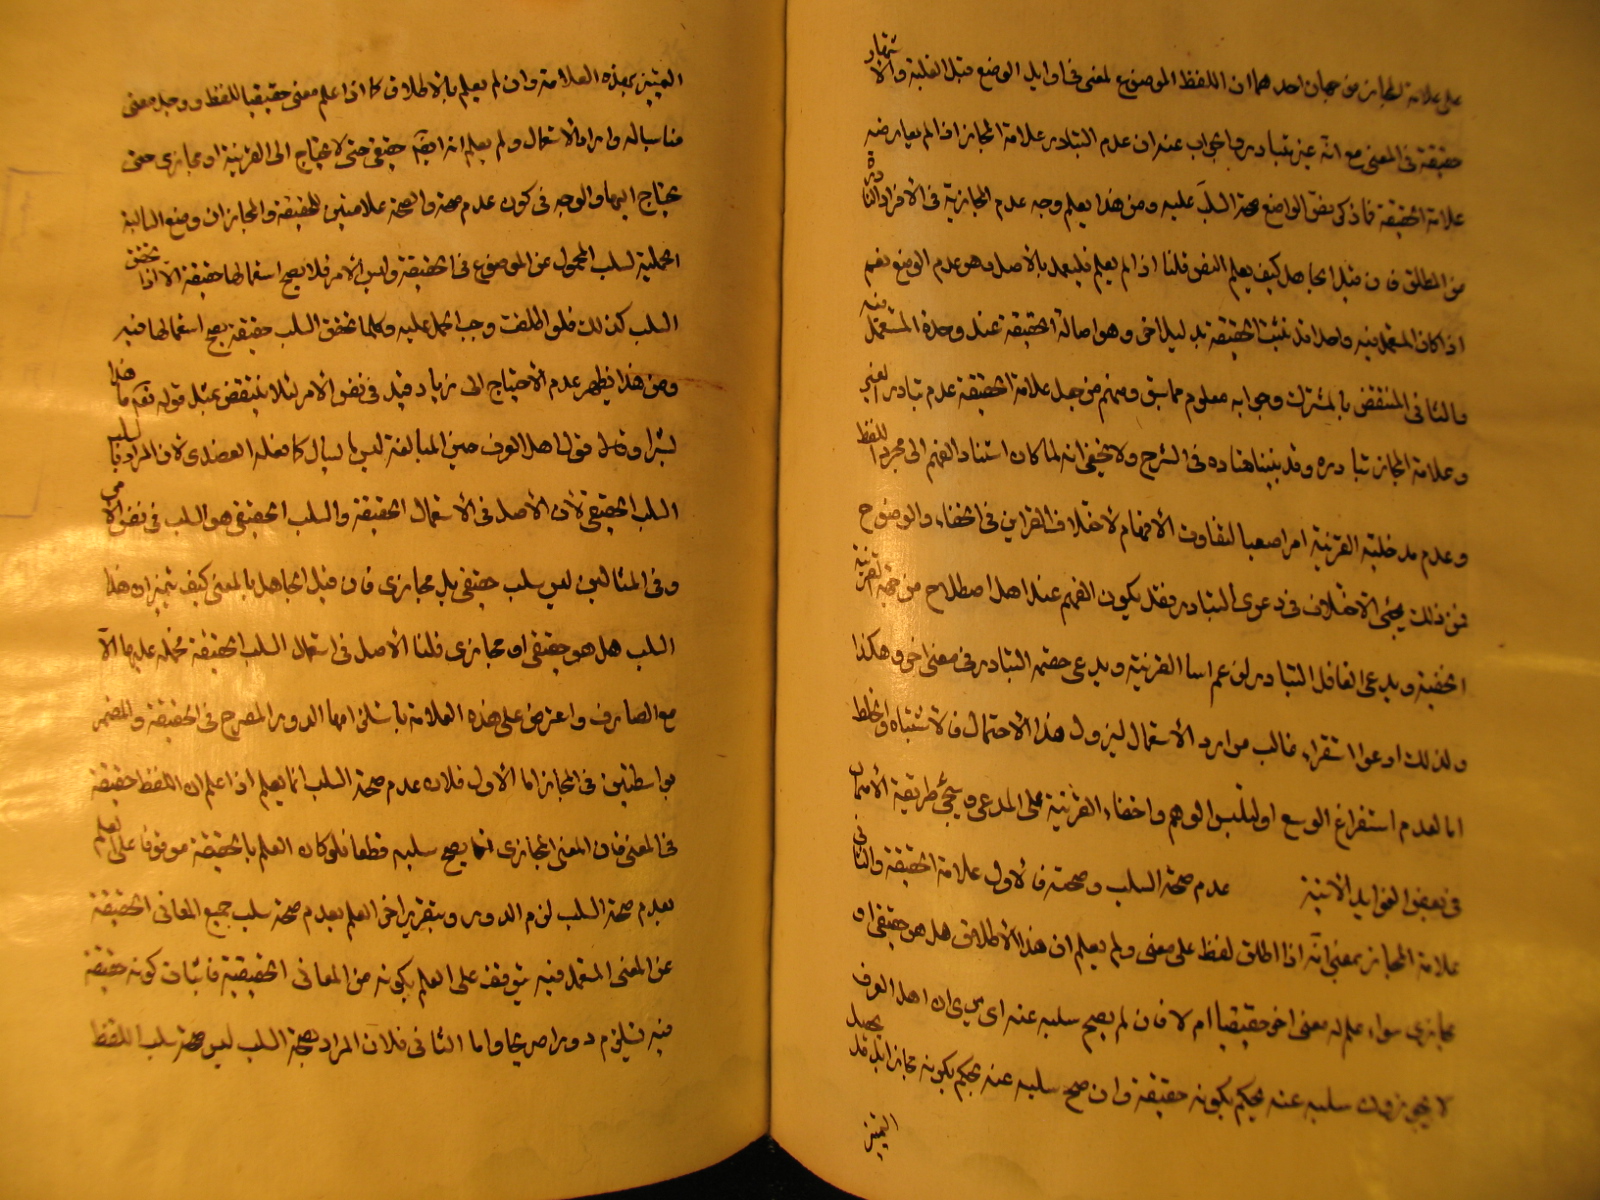 على علامة المجاز من جهات احدهما ان اللفظ الموضوع لمعنى في اوايل الوضع قبل الغلبة والاشتهار
حقيقة في المعنى مع انه غير متبادر والجواب عنه ان عدم التبادر علامة المجاز اذا لم يعارضه
علامة الحقيقة فاذكر نص الواضع صحة السلب عليه ومن هذا يعلم وجه عدم المجازية في الافراد النادرة
من المطلق فان قيل الجاهل كيف يعلم النص قلنا اذا لم يعلم فليعمل بالاصل وهو عدم الوضع نعم
اذا كان المستعمل فيه واحدا قد تثبت الحقيقة بدليل اخر وهو اصالة الحقيقة عند وحدة المستعمل فيه
والثاني المنتقض بالمشترك وجوابه معلوم مما سبق ومنهم من جعل علامة الحقيقة عدم تبادر الغير
وعلامة المجاز تبادره وقد بينا فساده في الشرح ولا يخفى انه لما كان استناد الفهم الى مجرد اللفظ
وعدم مدخلية القرينة امرا صعبا لتفاوت الافهام لاختلاف القراين في الخفاء والوضوح
فمن ذلك يجئ الاختلاف في دعوى التبادر فقد يكون الفهم عند اهل اصطلاح من جهة القرينة
الخفية ويدعي الغافل التبادر لزعم اساء القرينة ويدعي خصمه التبادر في معنى اخر وهكذا
ولذلك ادعوا استقراء غالب موارد الاستعمال ليزول هذا الاحتمال فالاشتباه والخلط
اما لعدم استفراغ الوسع او لتلبس الوهم واخفاء القرينة على المدعي وسيجئ طريقة الامتحان
في بعض الفوايد الاتية عدم صحة السلب وصحته فالاول علامة الحقيقة والثاني
علامة المجاز بمعنى انه اذا اطلق لفظ على معنى ولم يعلم ان هذا الاطلاق هل هو حقيقي او
مجازي سواء علم له معنى اخر حقيقيا ام لا فان لم يصح سلبه عنه اي يرى ان اهل العرف
لا يجوزون سلبه عنه يحكم بكونه حقيقة وان صح سلبه عنه يحكم بكونه مجازا بل قد يحصل
التميز
التميز بهذه العلامة وان لم يعلم بالاطلاق كما اذا علم معنى حقيقيا للفظ ووجد معنى
مناسبا له وايراد الاستعمال ولم يعلم انه ايضا حقيقي حتى لا يحتاج الى القرينة او مجازى حتى
يحتاج اليها والوجه في كون عدم صحة والصحة علامتين للحقيقة والمجاز ان وضع السالبة
الحملية لسلب المحمول عن الموضوع في الحقيقة ونفس الامر فلا يصح استعمالها حقيقة الا اذا تحقق
السلب كذلك فلو اطلقت وجب الحمل عليه وكلما تحقق السلب حقيقة يصح استعمالها فيه
ومن هذا يظهر عدم الاحتياج الى زياد قيد في نفس الامر لئلا ينتقض بمثل قوله تعالى ما هذا
بشرا وقول اهل العرف حين المبالغة ليس بانسان كما فعله العضدي لان المراد بالسلب
السلب الحقيقي لان الاصل في الاستعمال الحقيقة والسلب الحقيقي هو السلب في نفس الامر
وفي المثالين ليس سلب حقيقي بل مجازى فان قيل الجاهل بالمعنى كيف تميز ان هذا
السلب هل هو حقيقي او مجازى قلنا الاصل في استعمال السلب الحقيقة فحمله عليها الا
مع الصارف واعترض على هذه العلامة باستلزامها الدور المصرح في الحقيقة والمضمر
بواسطتين في المجاز اما الاول فلان عدم صحة السلب انما يعلم اذا علم ان اللفظ حقيقة
في المعنى فان المعنى المجازى انما يصح سلبه قطعا فلو كان العلم بالحقيقة موقوفا على العلم
بعدم صحة السلب لزم الدور وبتقرير اخر العلم بعدم صحة سلب جميع المعانى الحقيقة
عن المعنى المستعمل فيه يتوقف على العلم بكونه من المعانى الحقيقية فاثبات كونه حقيقة
فيه يستلزم دورا صريحا واما الثانى فلان المراد بصحة السلب ليس صحة سلب اللفظ